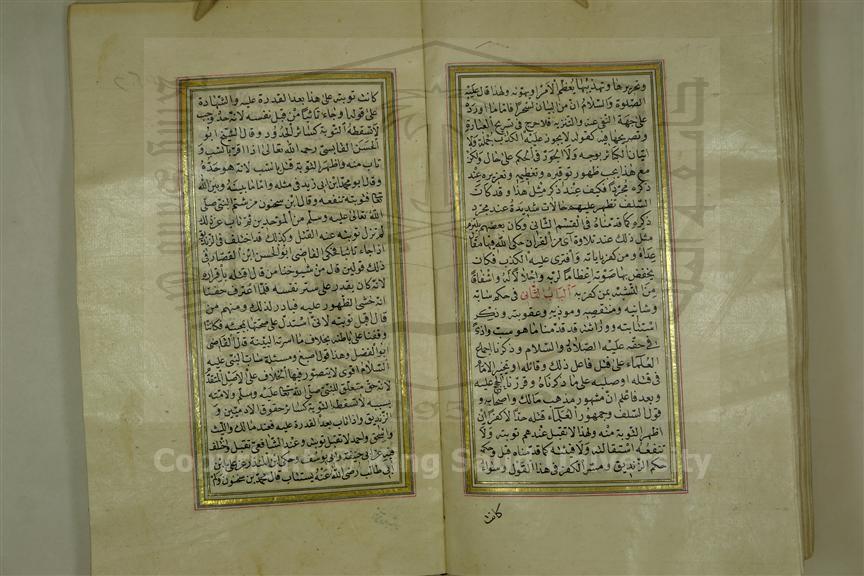 وتحريرها وتهذيبها يُعظّم الامر او يهونه ولهذا قال عليه
الصلوة والسلام ان من البيان لسحرا فاما ما اورده
على جهة النفى عنه والتنزيه فلا حرج فى تسريح العبارة
وتصريحها فيه كقوله لا يجوز عليه الكذب جملة ولا
اتيان الكبائر بوجه ولا الجور فى الحكم على حال ولكن
مع هذا يجب ظهور توقيره وتعظيمه وتعزيره عند
ذكره مجردا فكيف عند ذكر مثل هذا وقد كانت
السلف تظهر عليهم حالات شديدة عند مجرد
ذكره كما قدمناه فى القسم الثانى وكان بعضهم يلتزم
مثل ذلك عند تلاوة آى من القرآن حكى الله فيها مقال
عداه ومن كفر باياته وافترى عليه الكذب فكان
يخفض بها صوته اعظاما لربه واجلالا له واشفاقا
من التشبه بمن كفر به الباب الثانى فى حكم سابه
وشانيه ومتنقصه وموذيه وعقوبته وذكر
استتابته ووراثته قد قدمنا ما هو سب واذى
فى حقه عليه الصلاة والسلام وذكرنا اجماع
العلماء على قتل فاعل ذلك وقائله او تخيير الامام
فى قتله او صلبه على ما ذكرناه وقررنا الحجج عليه
وبعد فاعلم ان مشهور مذهب مالك واصحابه و
قول السلف وجمهور العلماء قتله حدا لا كفرا ان
اظهر التوبة منه ولهذا لا تقبل عندهم توبته ولا
تنفعه استقالته ولا فيئته كما قدمناه قبل وحكمه
حكم الزنديق ومسر الكفر فى هذا القول وسواء
كانت
كانت توبته على هذا بعد القدرة عليه والشهادة
على قوله او جاء تائبا من قبل نفسه لانه حد وجب
لا تسقطه التوبة كسائر الحدود وقال الشيخ ابو
الحسن القابسى رحمه الله تعالى اذا اقر بالسب و
تاب منه واظهر التوبة قتل بالسب لانه هو حده
وقال ابو محمد بن ابى زيد فى مثله واما ما بينه وبين الله
تعالى فتوبته تنفعه وقال ابن سحنون من شتم النبى صلى
الله تعالى عليه وسلم من الموحدين ثم تاب عن ذلك
لم تزل توبته عنه القتل وكذلك قد اختلف فى الزنديق
اذا جاء تائبا فحكى القاضى ابو الحسن ابن القصار فى
ذلك قولين قال من شيوخنا من قال قتله باقراره
لانه كان يقدر على ستر نفسه فلما اعترف خفنا
انه خشى الظهور عليه فبادر لذلك ومنهم من
قال اقبل توبته لانى استدل على صحتها بمجيئه فكاننا
وقفنا على باطنه بخلاف ما اسرته البينة قال القاضى
ابو الفضل وهذا قول اصبغ ومسئلة ساب النبى عليه
السلام اقوى لا يتصور فيها الخلاف على الاصل المتقدم
لانه حق متعلق للنبى صلى الله تعالى عليه وسلم ولامته
بسببه لا تسقطه التوبة كسائر حقوق الادميين و
الزنديق اذا تاب بعد القدرة عليه فعند مالك والليث
واسحق واحمد لا تقبل توبته وعند الشافعى تقبل واختلف
فيه عن ابى حنيفة وابو يوسف وحكى ابن المنذر عن على بن
ابى طالب رضى الله عنه يستتاب قال محمد بن سحنون ولم